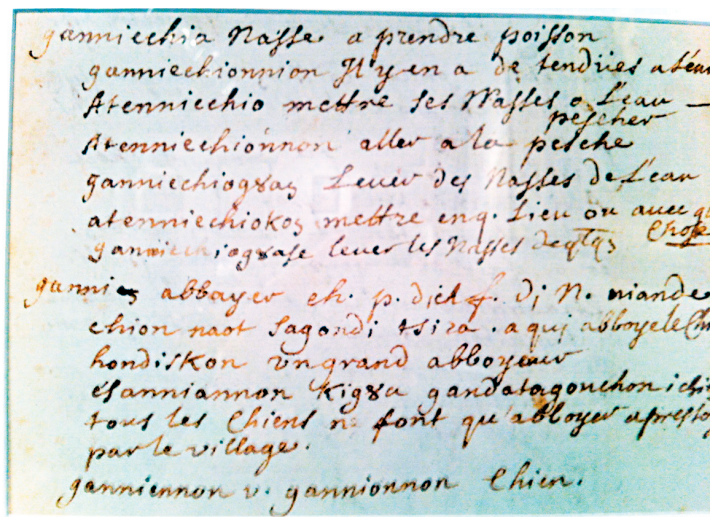 ganniechia Nasse a prendre poisson
ganniechionnion Il y en a de tendües a l'eau
Atenniechio mettre ses Nasses a l'eau —
pescher
Atenniechionnon aller a la pesche
ganniechiogȣaȝ Lever des Nasses de l'eau
atenniechiokoȝ mettre enq. Lieu ou avec q
ganniechiogȣase lever les Nasses de qlqȝ Chose
ganni abbayer ch. p. dich f. di N. niande
chion naot sagondi tsira . a qui abboye le Chi
hondiskon un grand abboyeur
esanniannon Kigȣa gandatagonchon ichi
tous les Chiens ne font qu'abboyer apres to
par le village.
ganniennon v. gannionnon Chien.